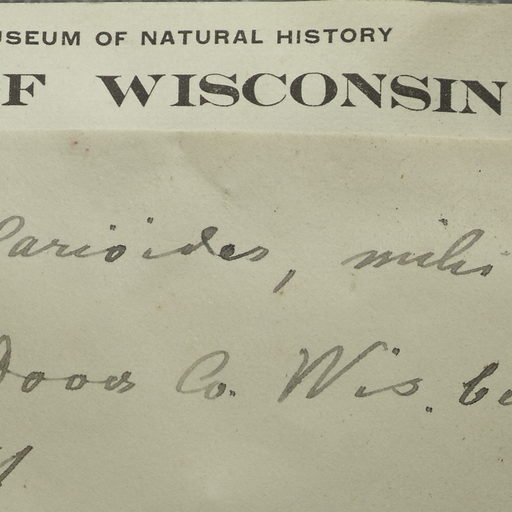 USEUM OF NATURAL HISTORY
F WISCONSIN
Carioides,
Door Co. Wis.